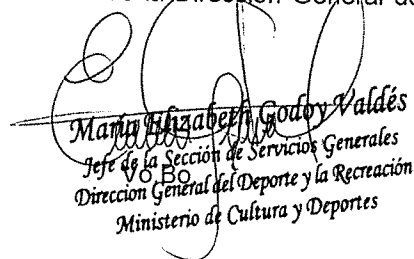 Dirección General de
María Elizabeth Godoy Valdés
Jefe de la Sección de Servicios Generales
Vo.Bo.
Dirección General del Deporte y la Recreación
Ministerio de Cultura y Deportes